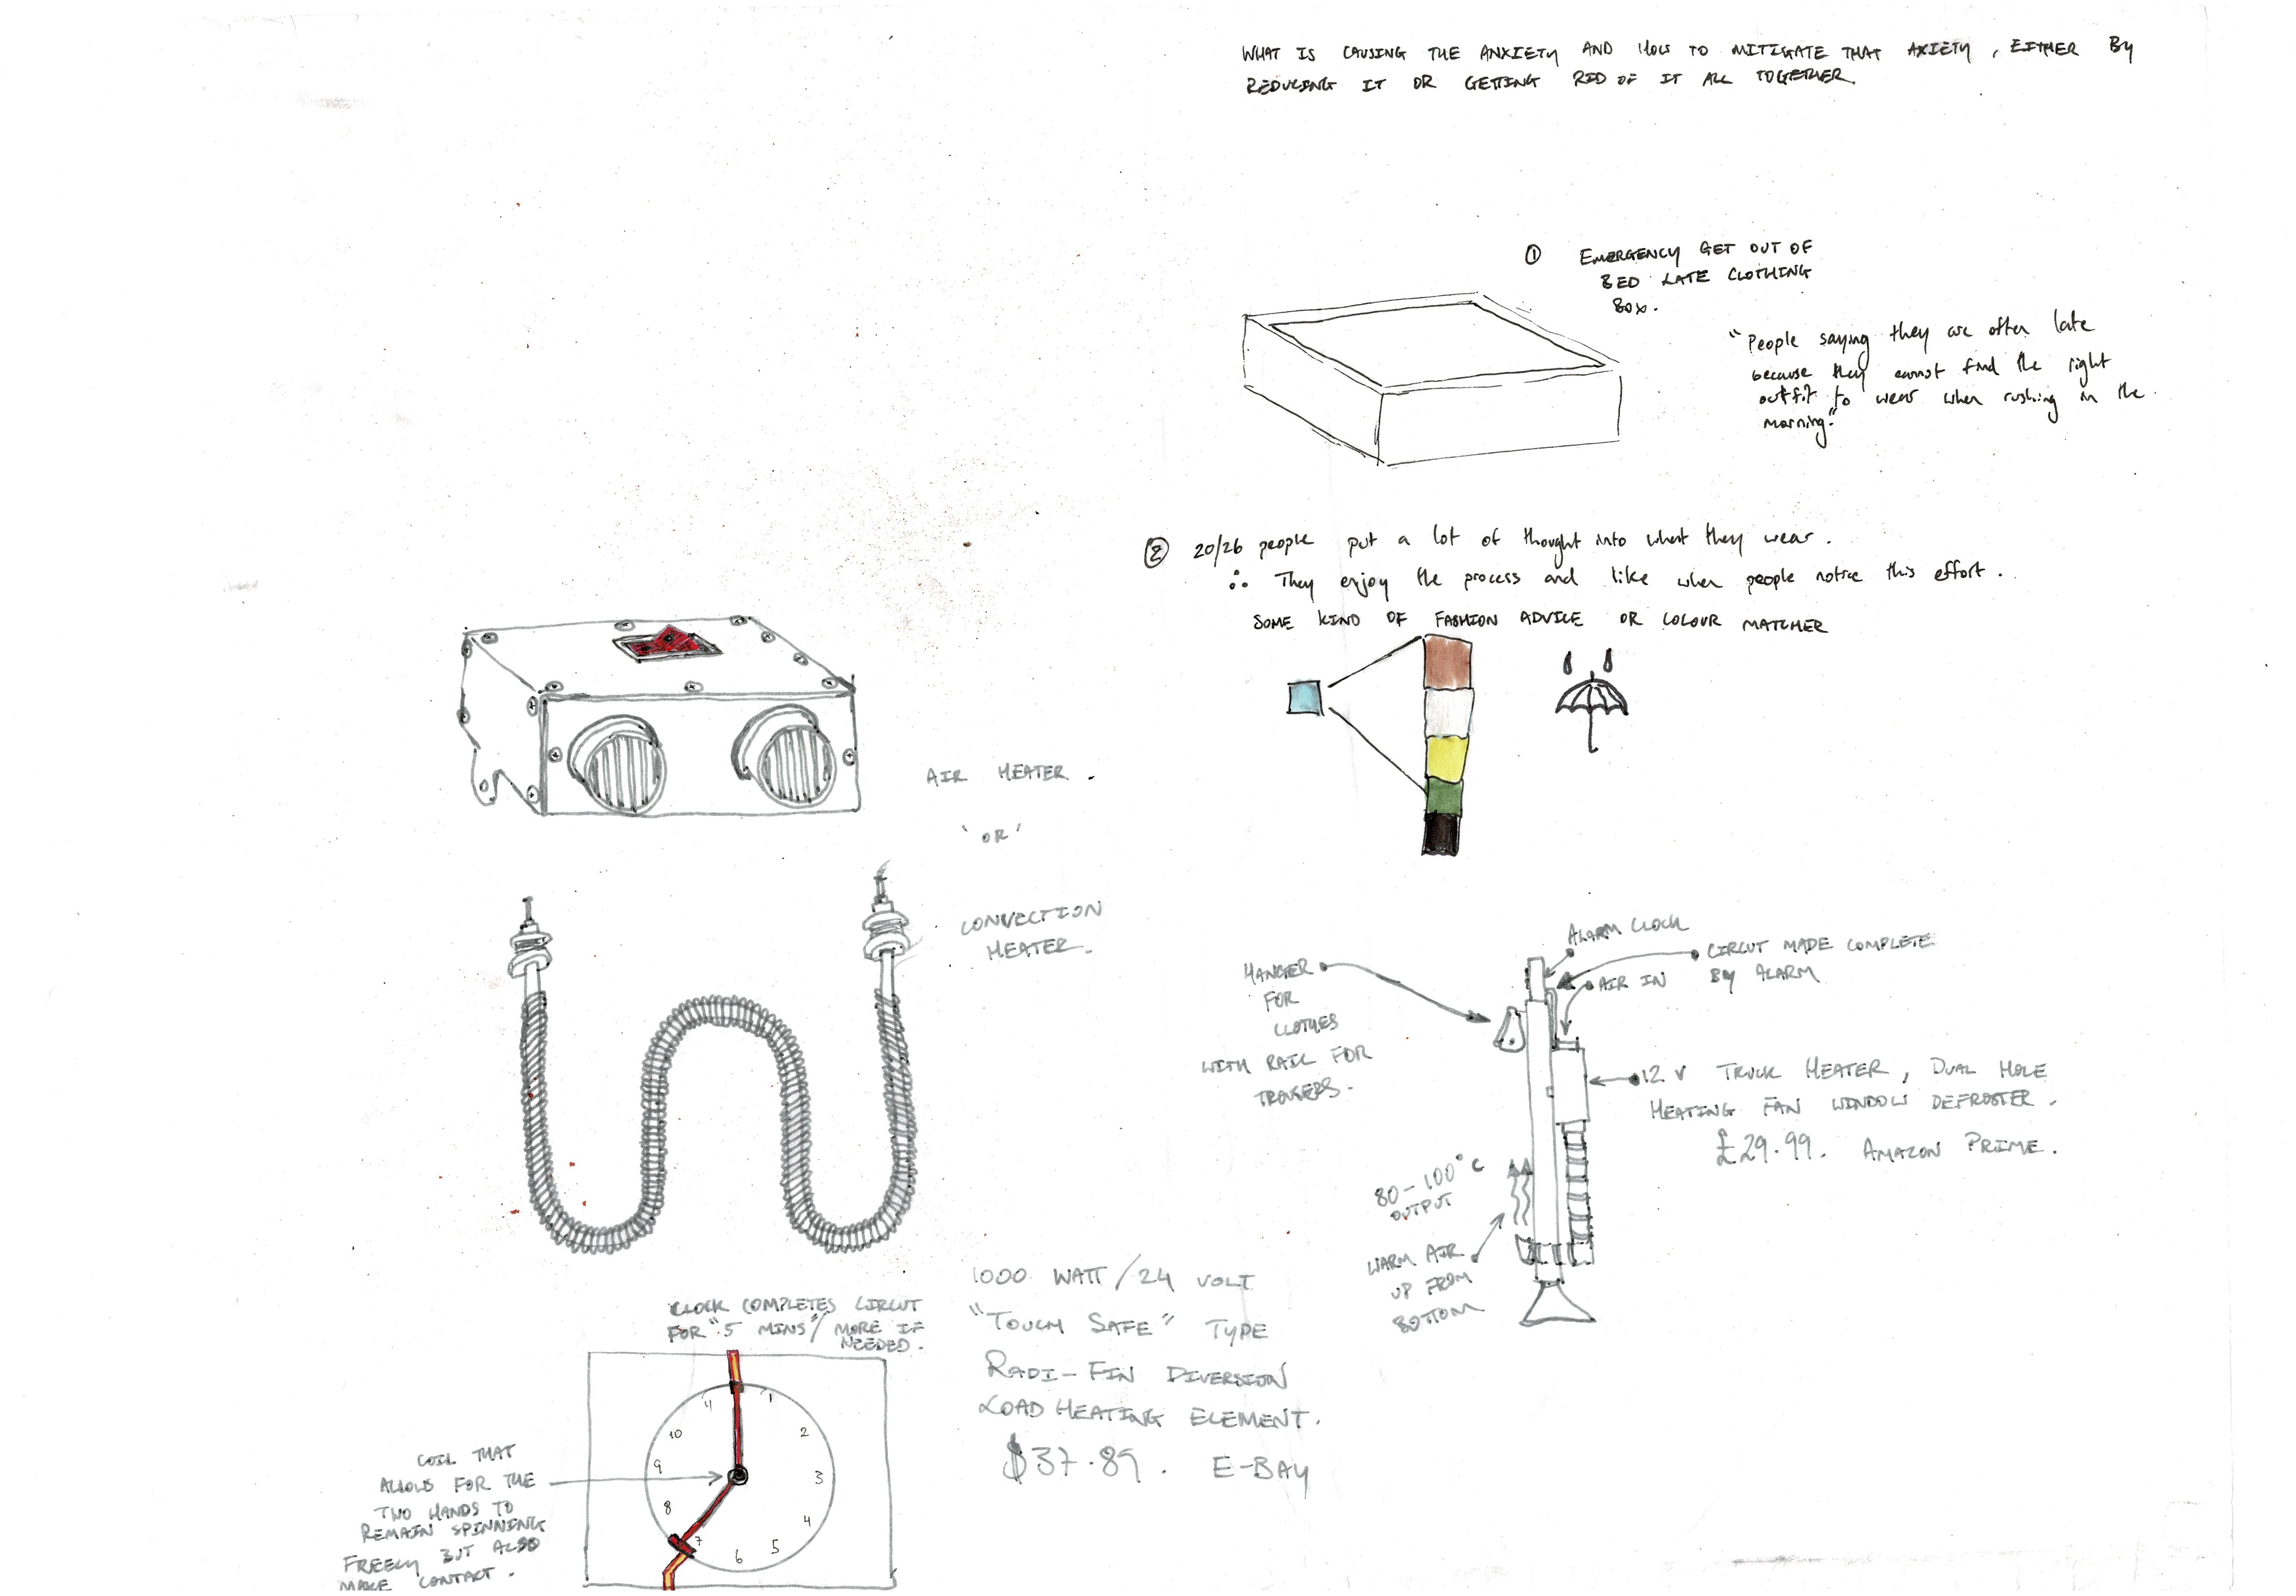 WHAT IS CAUSING THE ANXIETY AND HOW TO MITIGATE THAT AXIETY, EITHER BY
REDUCING IT OR GETTING RID OF IT ALL TOGETHER.
① EMERGENCY GET OUT OF
BED LATE CLOTHING
BOX.
"People saying they are often late
because they cannot find the right
outfit to wear when rushing in the
morning."
② 20/26 people put a lot of thought into what they wear.
∴ They enjoy the process and like when people notice this effort.
SOME KIND OF FASHION ADVICE OR COLOUR MATCHER
AIR HEATER.
'OR'
CONVECTION
HEATER.
ALARM CLOCK
CIRCUT MADE COMPLETE
BY ALARM
AIR IN
HANGER
FOR
CLOTHES
WITH RAIL FOR
TROUSERS.
12 V TRUCK HEATER, DUAL HOLE
HEATING FAN WINDOW DEFROSTER.
£29.99. AMAZON PRIME.
80-100°C
OUTPUT
WARM AIR
UP FROM
BOTTOM
1000 WATT/24 VOLT
"TOUCH SAFE" TYPE
RADI-FIN DIVERSION
LOAD HEATING ELEMENT.
$37.89. E-BAY
CLOCK COMPLETES CIRCUT
FOR "5 MINS"/MORE IF
NEEDED.
1
2
3
4
5
6
7
8
9
10
11
COIL THAT
ALLOWS FOR THE
TWO HANDS TO
REMAIN SPINNING
FREELY BUT ALSO
MAKE CONTACT.